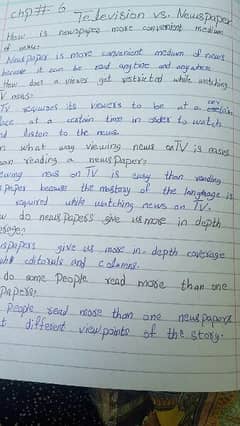 chp # 6
Television vs. Newspaper
How is newspaper more convenient medium
of news?
Newspaper is more convenient medium of news
because it can be read anytime and anywhere.
How does a viewer get restricted while watching
TV news?
TV requires its viewers to be at a certain
place at a certain time in order to watch
and listen to the news.
In what way viewing news on TV is easier
than reading a newspaper?
viewing news on TV is easy than reading
newspaper because the mastery of the language is
required while watching news on TV.
How do newspapers give us more in depth
coverage?
Newspapers give us more in-depth coverage
editorials and columns.
do some People read more than one
papers?
People read more than one newspapers
different viewpoints of the story.